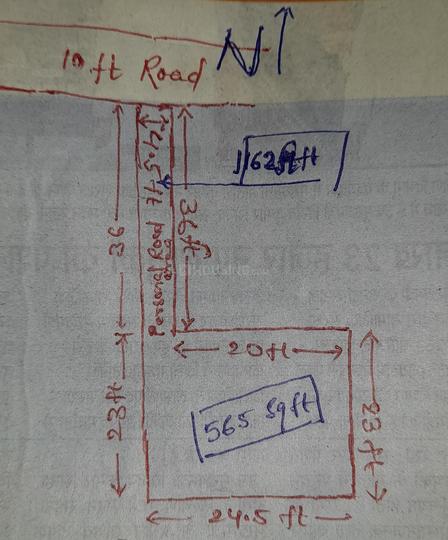 10 ft Road
N
4.5 ft
162 sq ft
36
36 ft
Personal Road
20 ft
23 ft
565 sq ft
23 ft
24.5 ft